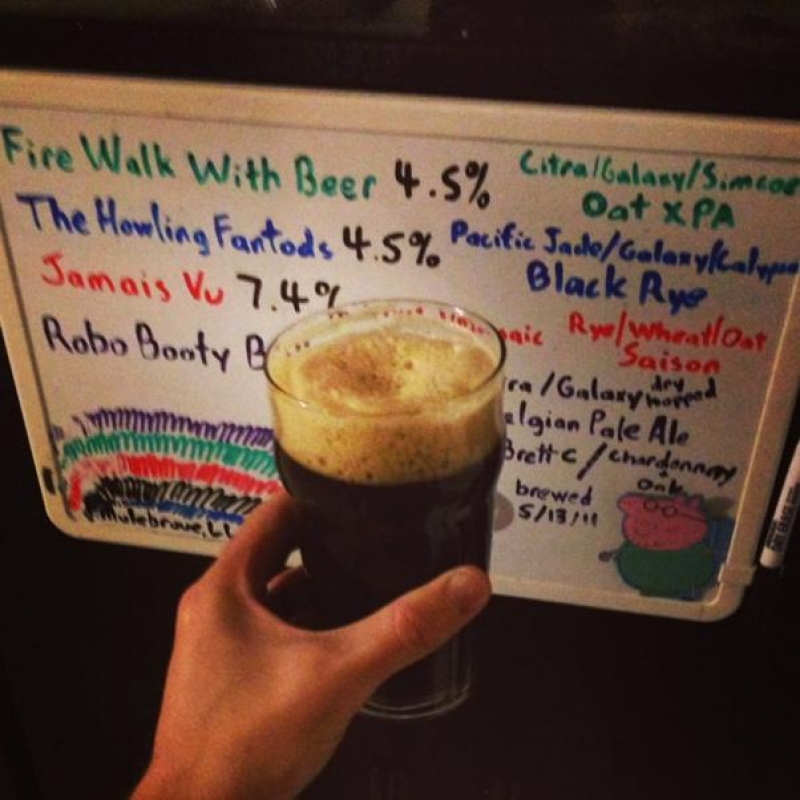 Fire Walk With Beer 4.5% Citra/Galaxy/Simcoe
Oat XPA
The Howling Fantods 4.5% Pacific Jade/Galaxy/Calypso
Black Rye
Jamais Vu 7.4% Rye/Wheat/Oat
Saison
Robo Booty B
/Galaxy dry hopped
elgian Pale Ale
Brett C / Chardonnay
Oak
brewed
5/13/11